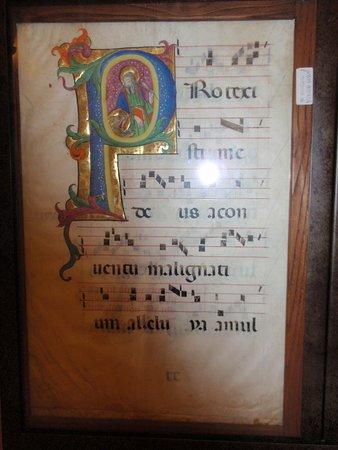 PRotexi
sti me
de us a con
uentu malignati
um allelu ya a mul